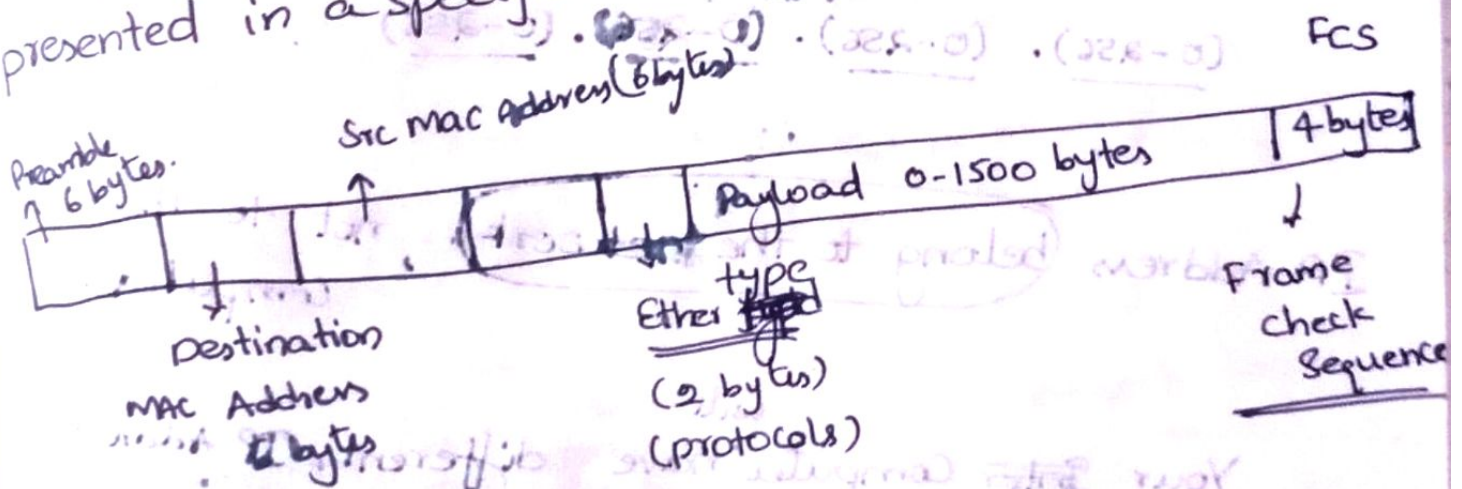 presented in a
FCS
Src Mac Address (6bytes)
Preamble
6 bytes.
Payload 0-1500 bytes
4 bytes
Destination
MAC Address
bytes
type
Ether
(2 bytes)
(protocols)
Frame
check
Sequence